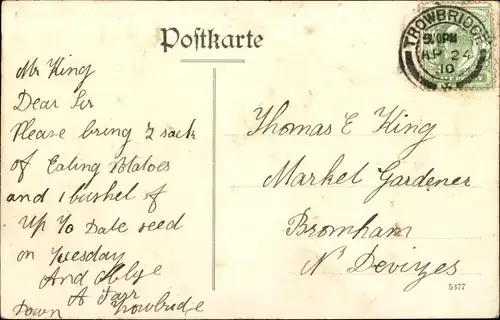 Postkarte
TROWBRIDGE
AP 24
10
Mr King
Dear Sir
Please bring 2 sack
of Eating Potatoes
and 1 bushel of
Up To Date seed
on Tuesday
And Oblige
A Farr
Down Trowbridge
Thomas E King
Market Gardener
Bromham
Nr Devizes
5477